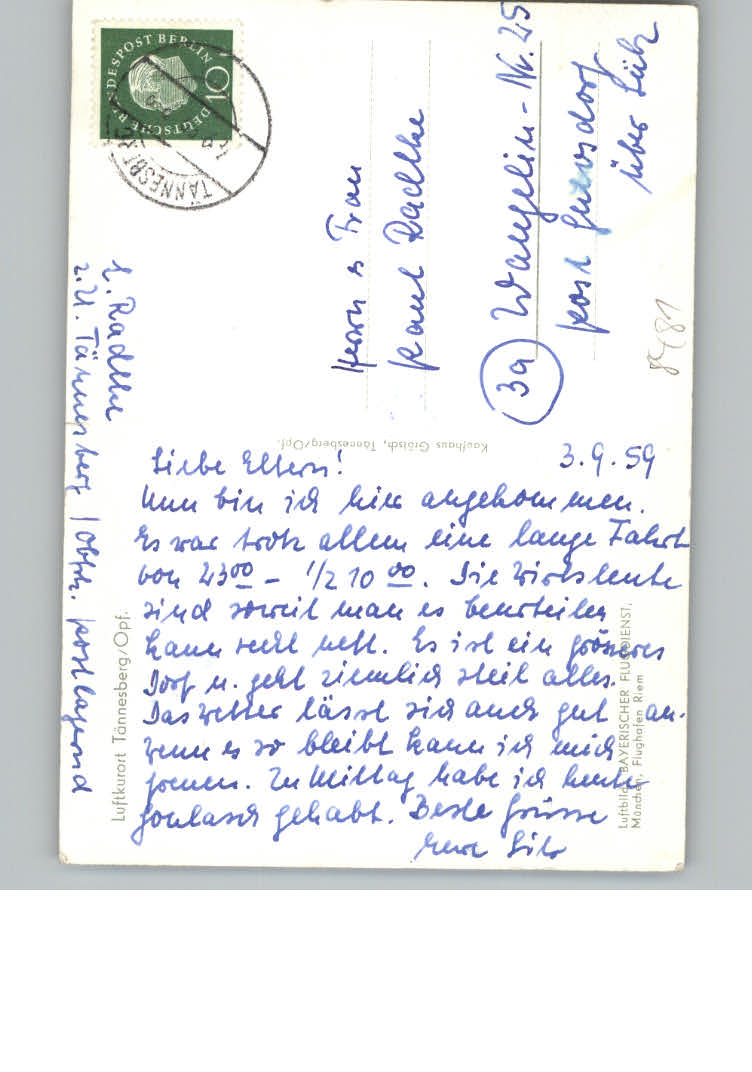 DEUTSCHE BUNDESPOST BERLIN
10
TÄNNESBERG
L. Radtke
z. Zt. Tännesberg / Obpf. postlagernd
Herrn u Frau
Paul Radtke
(3a) Wangelin - Nr. 25
post
über Lübz
8481
Kaufhaus Grötsch, Tännesberg/Opf.
3.9.59
Liebe Eltern!
Nun bin ich hier angekommen.
Es war trotz allem eine lange Fahrt
von 23 00 – 1/2 10 00. Die Wirtsleute
sind soweit man es beurteilen
kann recht nett. Es ist ein grösseres
Dorf u. geht ziemlich steil alles.
Das Wetter lässt sich auch gut an.
wenn es so bleibt kann ich mich
freuen. Zu Mittag habe ich heute
Goulasch gehabt. Beste Grüsse
Eure
Luftkurort Tännesberg/Opf.
Luftbild: BAYERISCHER FLUGDIENST,
München, Flughafen Riem